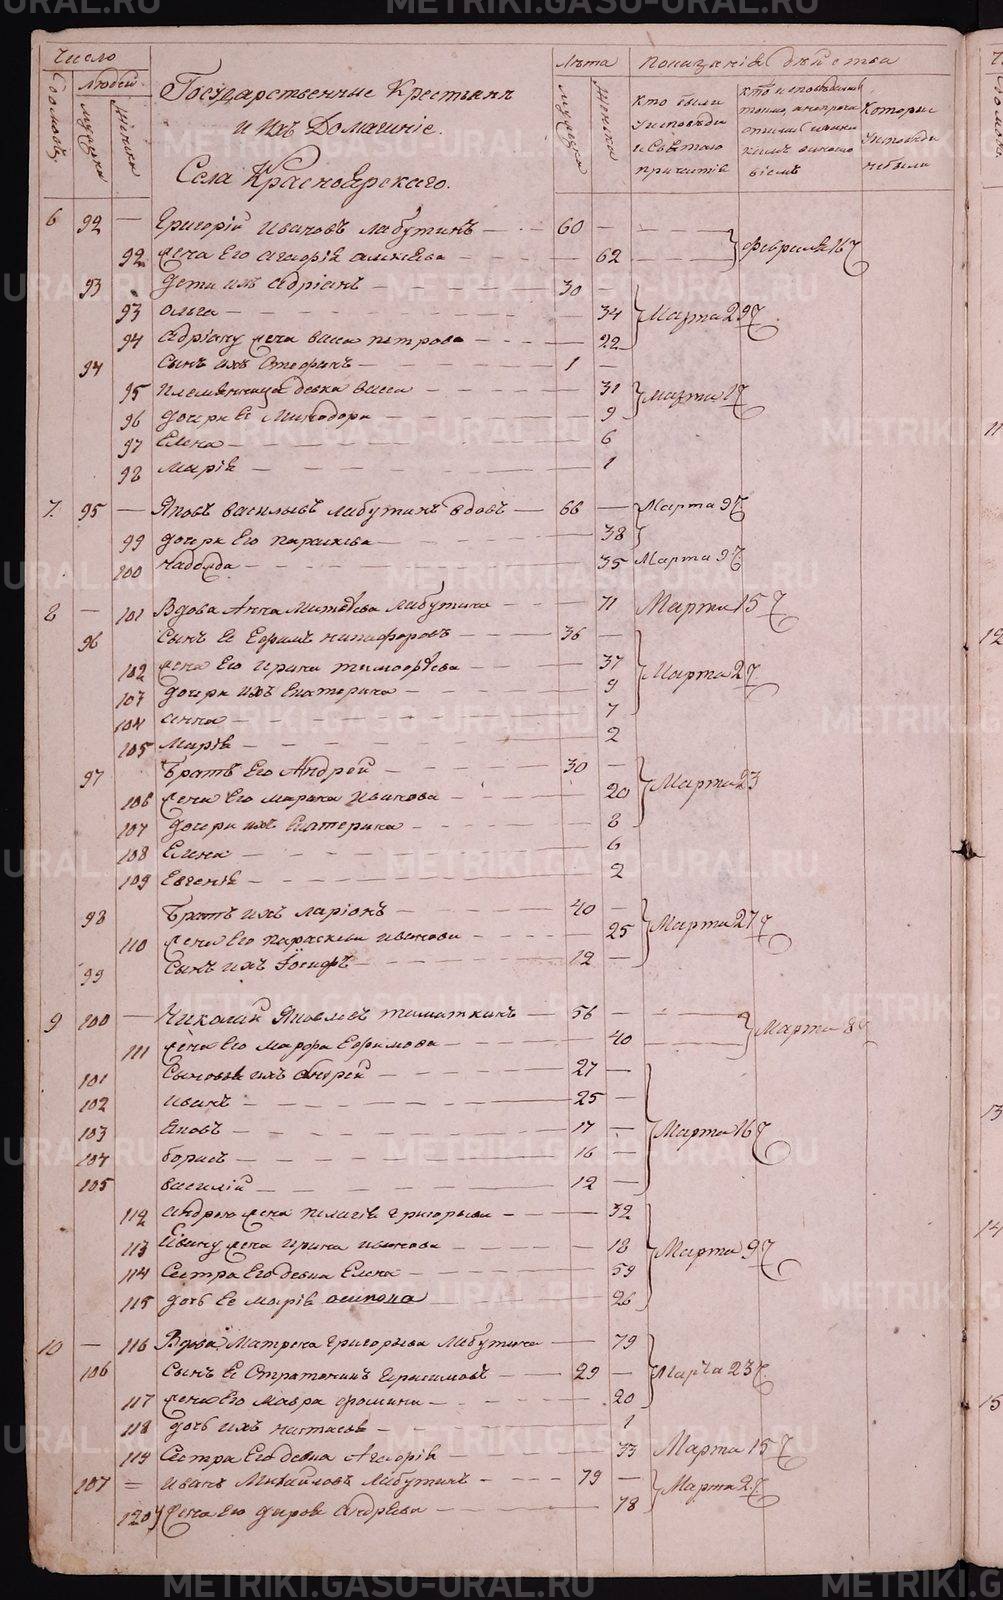 Число
Лѣта Показанїѧ дѣйства
Домовъ
Людей
мужеска
женска
Государственные Крестьяне
и Ихъ Домашнїе.
Села Красноярскаго.
мужеска
женска
кто были
У исповѣди
и Святаго
причастія
кто исповѣдался
токмо, а не прича
стился и по ка
кимъ винамъ
Которые
У исповѣди
небыли
6 92 — Григорїй Ивановъ Лабутинъ — 60 —
92 жена Его Агафїя Алиѣева — 62 Февраля 16
93 Дети ихъ Адрїанъ — 30
93 Ольга — 34 Марта 29
94 Адрїану жена Васса Петрова — 22
94 Сынъ ихъ Стефанъ — 1 —
95 Племянница девка Васса — 31 Марта
96 Дочери Ея Минодора — 9
97 Елена — 6
98 Марїя — 1
7. 95 — Яковъ Васильевъ Лабутинъ вдовъ — 66 — Марта 9
99 Дочери Его Парасковья — 38
100 Надежда — 35 Марта 9
8 — 101 Вдова Анна Матвѣева Лабутина — 71 Марта 15
96 Сынъ Ея Ефимъ Никифоровъ — 36 —
102 жена Его Ирина Тимофѣева — 37 Марта 2
103 Дочери ихъ Екатерина — 9
104 Анна — 7
105 Марїя — 2
97 Братъ Его Андрей — 30 — Марта 23
106 жена Его Марина Иванова — 20
107 Дочери ихъ Екатерина — 8
108 Елена — 6
109 Евгенїя — 2
98 Братъ ихъ Ларїонъ — 40 —
110 жена Его Параскева Иванова — 25 Марта 27
99 Сынъ ихъ Іосифъ — 12 —
9 100 — Николай Яковлевъ — 56 — Марта 8
111 жена Его Марфа Ефимова — 40
101 Сыновья ихъ Андрей — 27 —
102 Иванъ — 25 —
103 Яковъ — 17 — Марта 16
104 Борисъ — 16 —
105 Василїй — 12 —
112 Андрею жена Пелагїя Григорьева — 32
113 Ивану жена Ирина Иванова — 18 Марта 9
114 Сестра Его девка Елена — 59
115 дочь Ея Марїя Осипова — 26
10 — 116 Вдова Матрена Григорьева Лабутина — 79
106 Сынъ Ея Стратоникъ Герасимовъ — 29 — Марта 23
117 жена Его Мавра Фомина — 20
118 дочь ихъ Настасья — 1
119 Сестра Его девка Агафїя — 33 Марта 15
107 = Иванъ Михайловъ Лабутинъ — 79 — Марта 2
120 жена Его Андреева — 78
11
12
13
14
15
METRIKI.GASO-URAL.RU